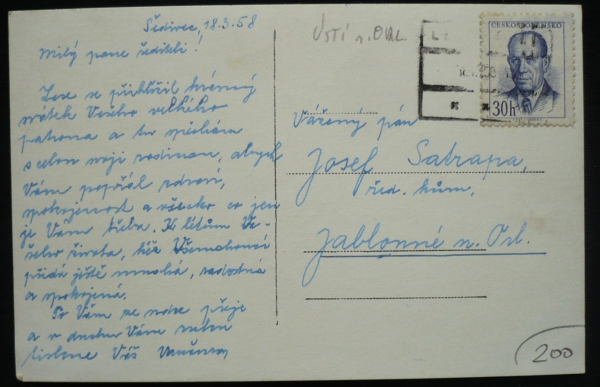 Šedivec, 18.3.58
Milý pane řediteli!
Zase se přiblížil krásný
svátek Vašeho velkého
patrona a tu spěchám
s celou mojí rodinou, abych
Vám popřál zdraví,
spokojenost a všecko co jen
je Vám třeba. K létům Va-
šeho života, kéž Všemohoucí
přidá ještě mnohá, radostná
a spokojená.
To Vám ze srdce přeje
a v duchu Vám ruku
tiskne Váš
ÚSTÍ n. ORL.
ČESKOSLOVENSKO
30h
Vážený pán
Josef Satrapa,
řed. kům.
Jablonné n. Orl.
200